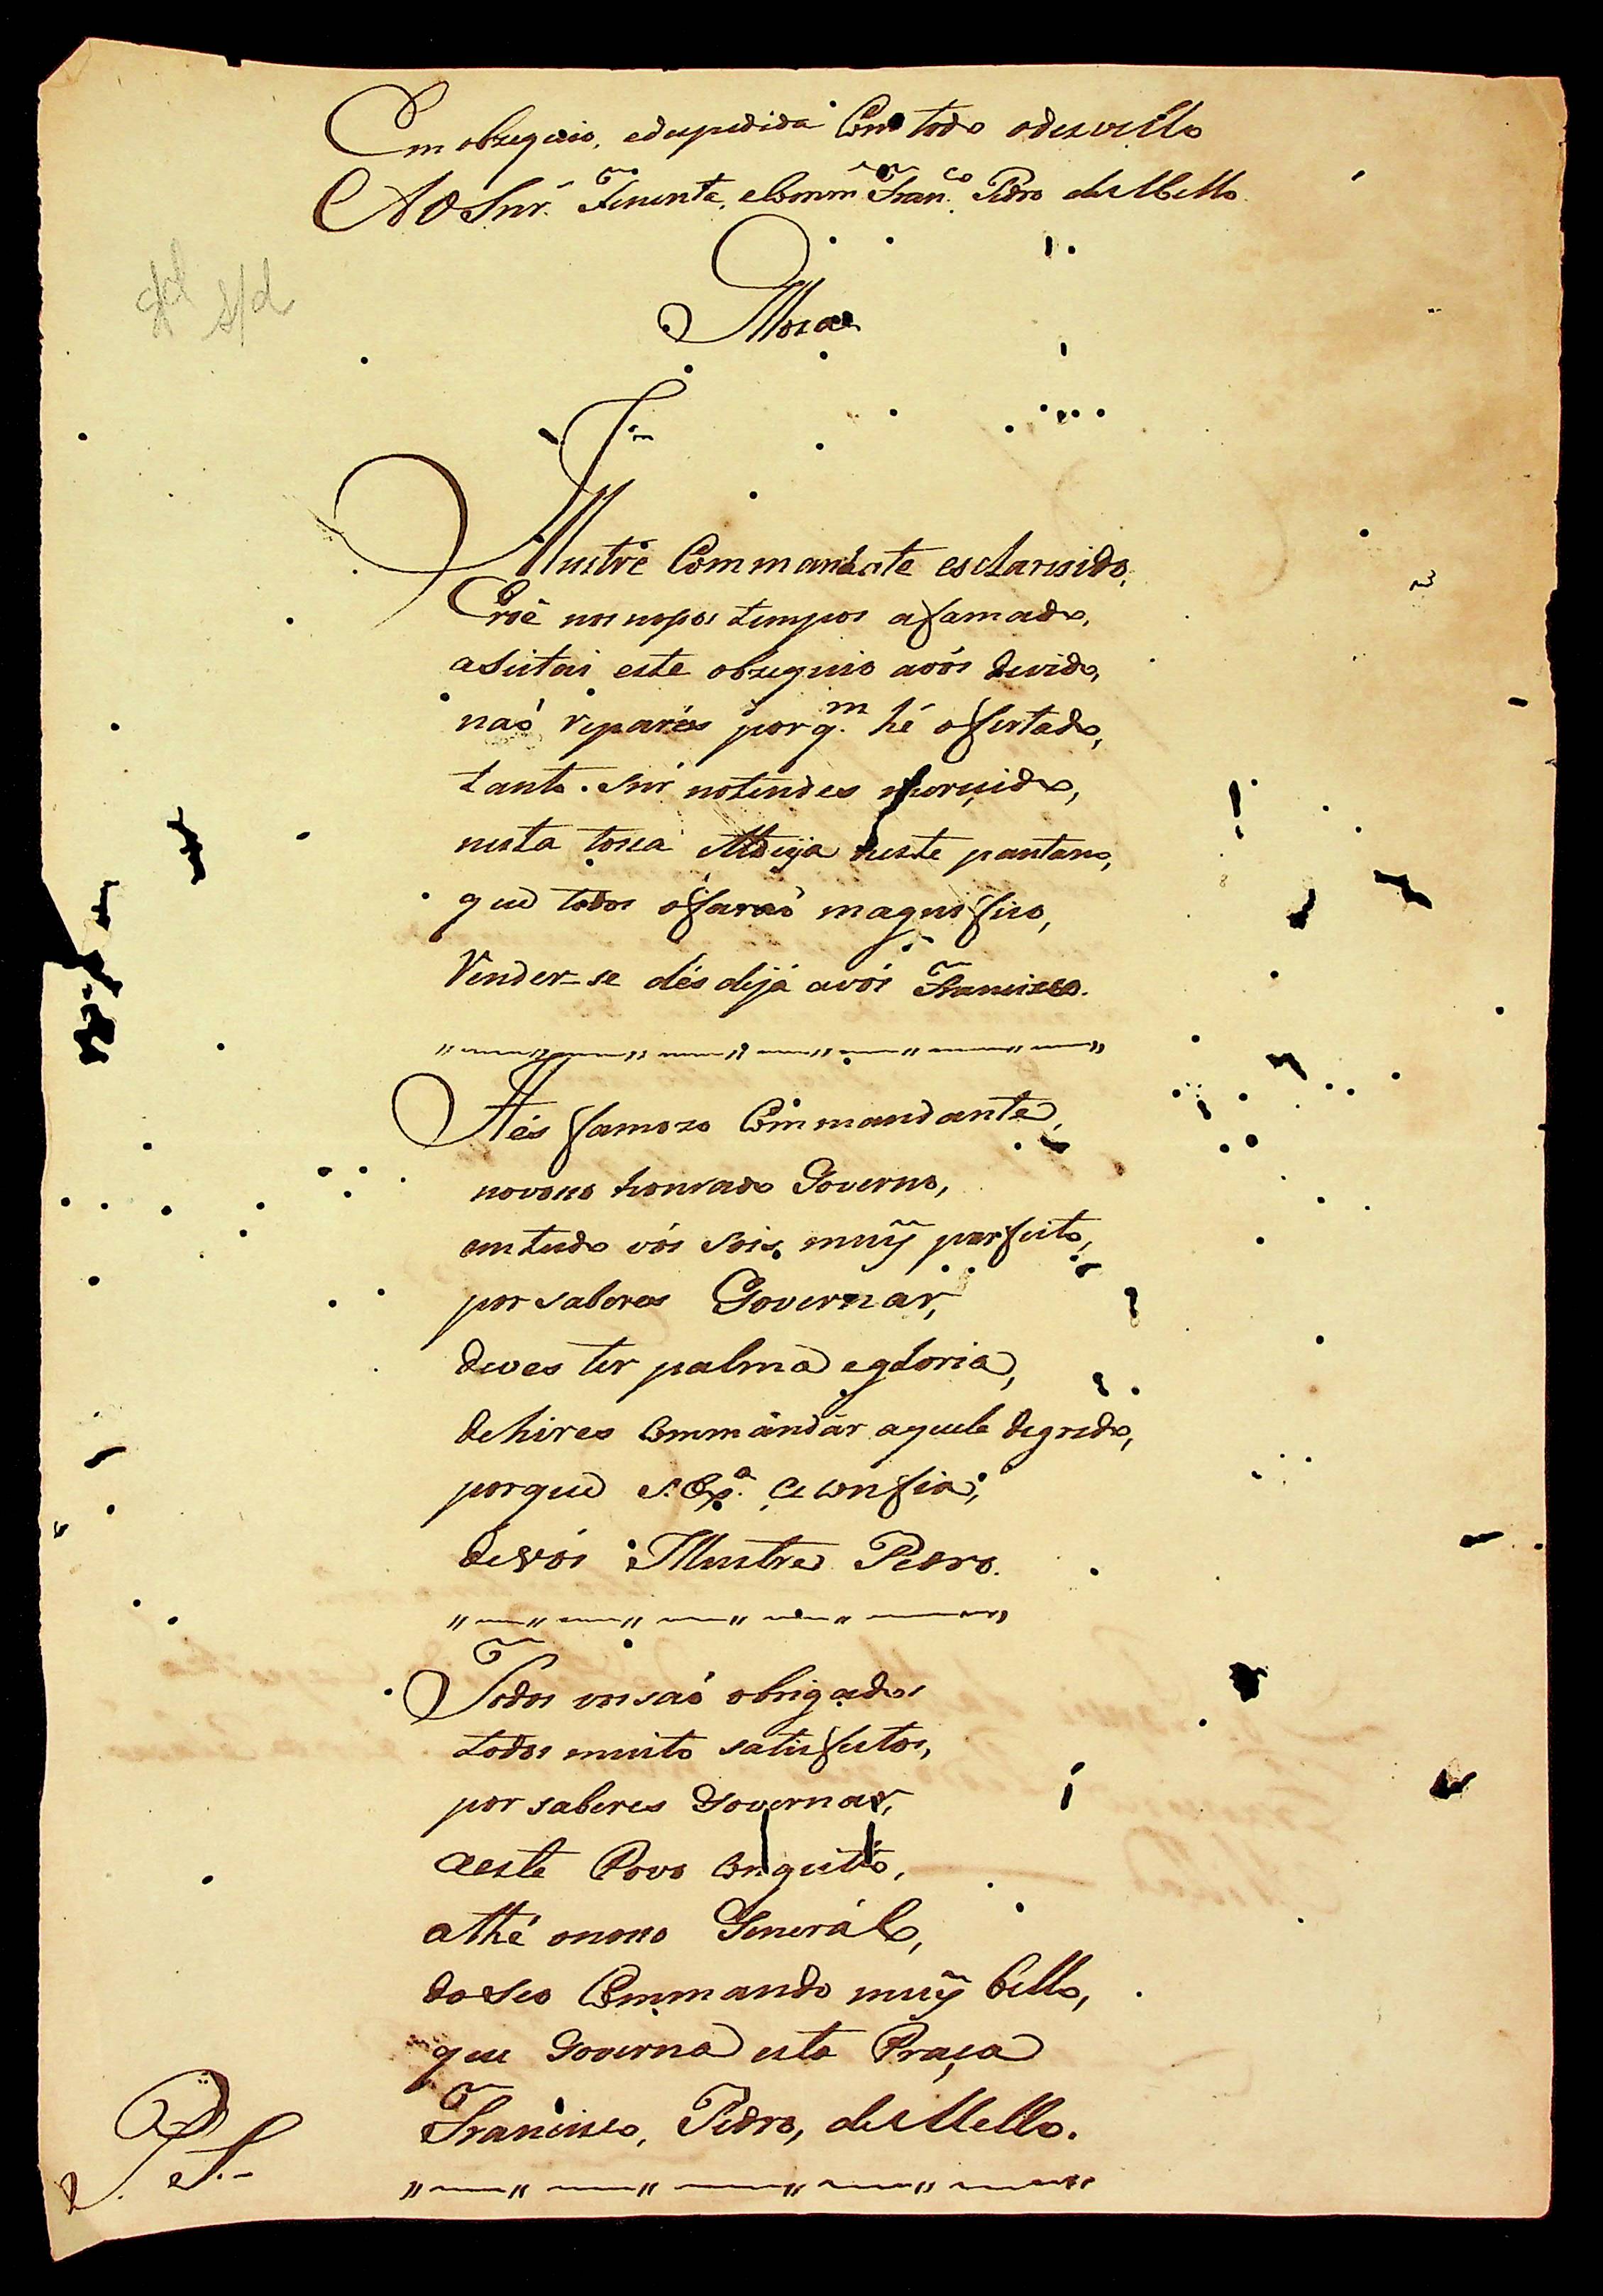 Em obzequio, edespedida Com todo odesvello
AO Snr. Tenente, eComm Fran.co Pedro deMello
gd s/d
Illustre Commandante esclarusido,
Eroê nos nosos tempos afamado,
aseitai este obzequio avós devido,
naó repareis porq.m hé ofertado,
tanto Snr notendes merecido,
nesta tosca Aldeya neste pantano,
que todos ofaraó magnifico,
Render-se désdejá avós Francisco.
Hés famozo Commandante,
novoso honrado Governo,
emtudo vós sois, muy perfeito,
por saberes Governar,
deves ter palma egloria,
dehires Commandar aquele degredo,
porque S. Ex.a Ce confia,
devós Illustre Pedro.
Todos vos saó obrigados
todos muito satisfeitos,
por saberes Governar,
aeste Povo Comquisto,
athé onoso Generál,
do seo Commando muy bello,
que Governa esta Praça
Francisco, Pedro, deMello.